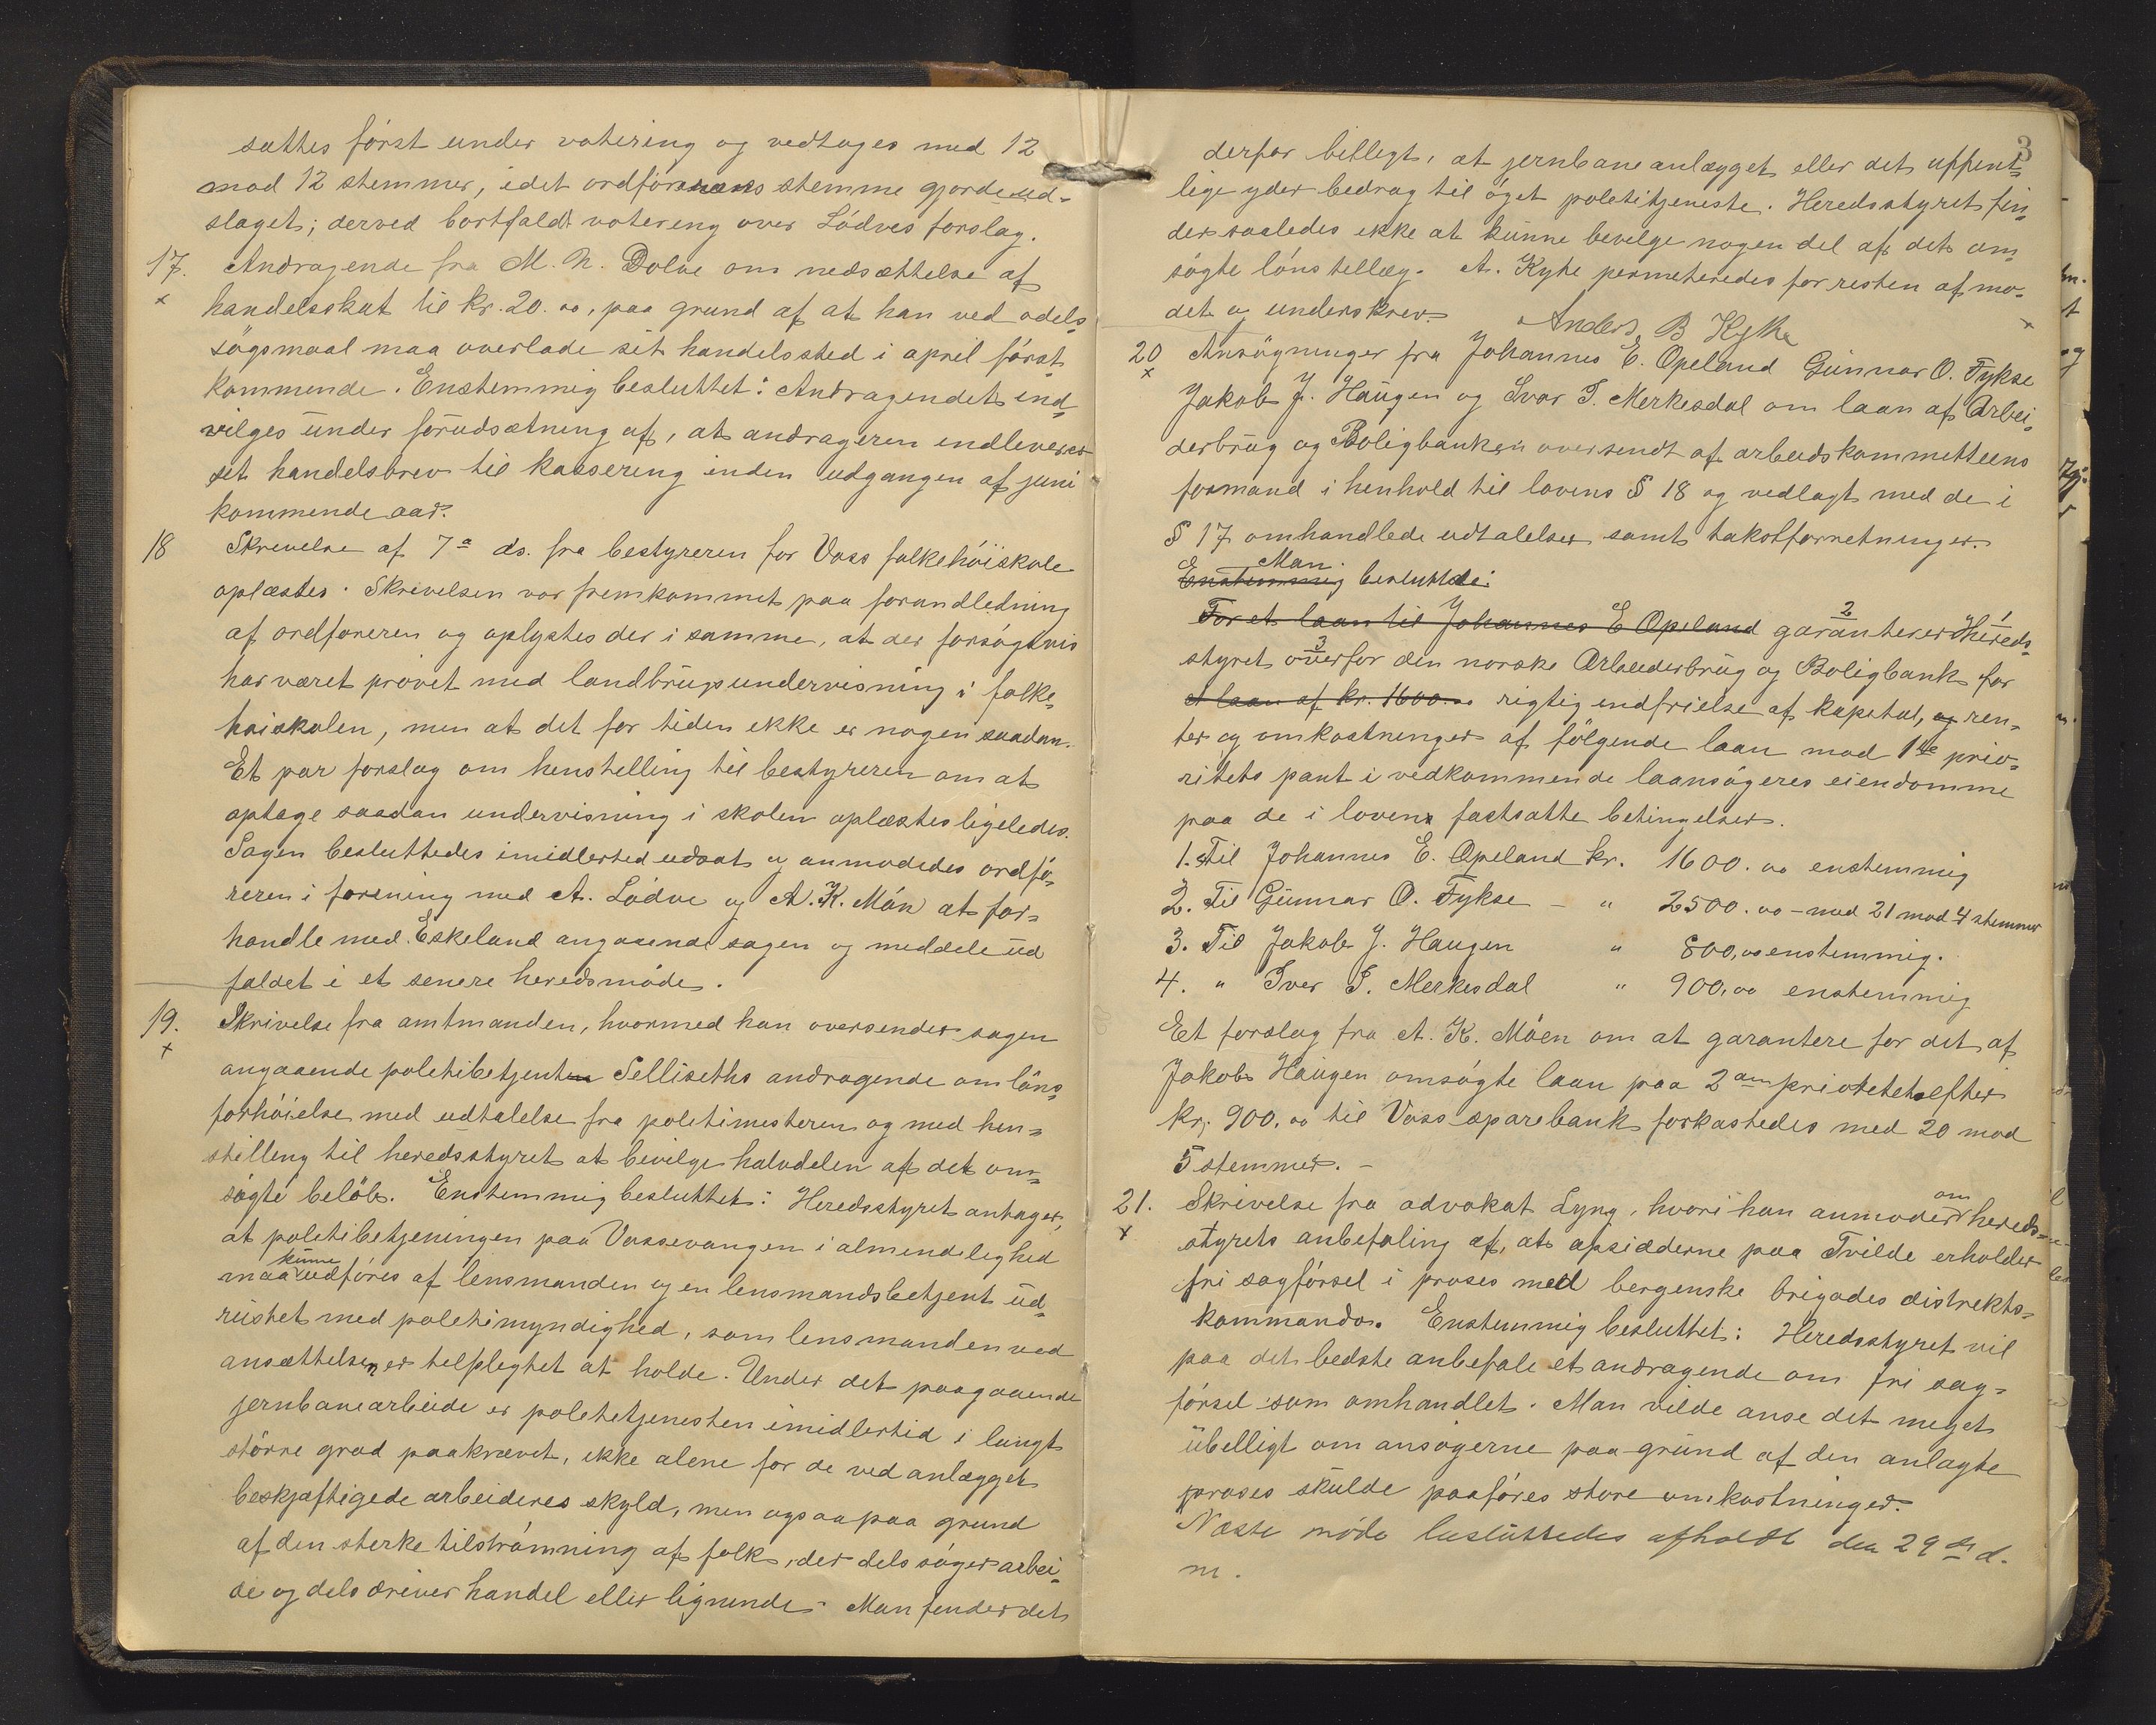 sattes först under votering og vedtoges med 12
mod 12 stemmer, idet ordförerens stemme gjorde ud-
slaget; derved bortfaldt votering over Lödves forslag.
17. Andragende fra M. N. Dolve om nedsættelse af
x
handelsskat til kr. 20.00, paa grund af at han ved odels-
sögsmaal maa overlade sit handelssted i april först
kommende. Enstemmig besluttet: Andragendet ind-
vilges under forudsætning af, at andrageren indleverer
sit handelsbrev til kassering inden udgangen af juni
kommende aar.
18 Skrivelse af 7de ds. fra bestyreren for Voss folkehöiskole
oplæstes. Skrivelsen var fremkommet paa foranledning
af ordføreren og oplystes der i samme, at der forsögsvis
har været prövet med landbrugsundervisning i folke-
höiskolen, men at det for tiden ikke er nogen saadan.
Et par forslag om henstilling til bestyreren om at
optage saadan undervisning i skolen oplæstes ligeledes.
Sagen besluttedes imidlertid udsat og anmodedes ordfö-
reren i forening med A. Lödve og A. K. Mön at for-
handle med Eskeland angaaende sagen og meddele ud
faldet i et senere heredsmöde.
19. Skrivelse fra amtmanden, hvormed han oversender sagen
x
angaaende politibetjent Selliseths andragende om löns-
forhöielse med udtalelse fra politimesteren og med hen-
stilling til heredsstyret at bevilge halvdelen af det om-
sögte belöb. Enstemmig besluttet: Heredsstyret antager,
at politibetjeningen paa Vossevangen i almindelighed
kunne
maa udföres af lensmanden og en lensmandsbetjent ud-
rustet med politimyndighed, som lensmanden ved
ansættelsen er tilpligtet at holde. Under det paagaaende
jernbanearbeide er politetjenesten imidlertid i langt
större grad paakrævet, ikke alene for de ved anlægget
beskjæftigede arbeideres skyld, men ogsaa paa grund
af den sterke tilströmning af folk, der dels söger arbei-
de og dels driver handel eller lignende. Man finder det
3
derfor billigt, at jernbaneanlægget eller det offent-
lige yder bedrag til öget politetjeneste. Heredsstyret fin-
der saaledes ikke at kunne bevilge nogen del af det om-
sögte lönstillæg. A. Kyte permeteredes for resten af mö-
det og underskrev. Anders B Kyte
x
20 Ansögninger fra Johannes E. Opeland Gunnar O. Tykse
x
Jakob J. Haugen og Ivar S. Merkesdal om laan af Arbei-
derbrug og Boligbanken oversendt af arbeidskommitteens
formand i henhold til lovens § 18 og vedlagt med de i
§ 17 omhandlede udtalelser samt takstforretninger.
Man
Enstemmig besluttede:
2 1
For et laan til Johannes E Opeland garanterer Hereds-
3
styret overfor den norske Arbeiderbrug og Boligbank for
et laan af kr. 1600.00 rigtig indfrielse af kapital, og ren-
ter og omkostninger af fölgende laan mod 1ste prio-
ritets pant i vedkommende laansögeres eiendomme
paa de i loven fastsatte betingelser.
1. Til Johannes E. Opeland kr. 1600.00 enstemmig
2. Til Gunnar O. Tykse - " 2500.00 - med 21 mod 4 stemmer
3. Til Jakob J. Haugen " 800,00 enstemmig.
4. " Iver S. Merkesdal " 900,00 enstemmig
Et forslag fra A. K. Möen om at garantere for det af
Jakob Haugen omsögte laan paa 2den prioritet efter
kr. 900.00 til Voss sparebank forkastedes med 20 mod
5 stemmer. -
21. Skrivelse fra advokat Lyng, hvori han anmoder om hereds-
x
styrets anbefaling af, at opsidderne paa Tvilde erholder
fri sagförsel i proses med bergenske brigades distrikts-
kommando. Enstemmig besluttet: Heredsstyret vil
paa det bedste anbefale et andragende om fri sag-
försel som omhandlet. Man vilde anse det meget
ubilligt om ansögerne paa grund af den anlagte
proses skulde paaföres store omkostninger.
Næste möde besluttedes afholdt den 29de d.
m.